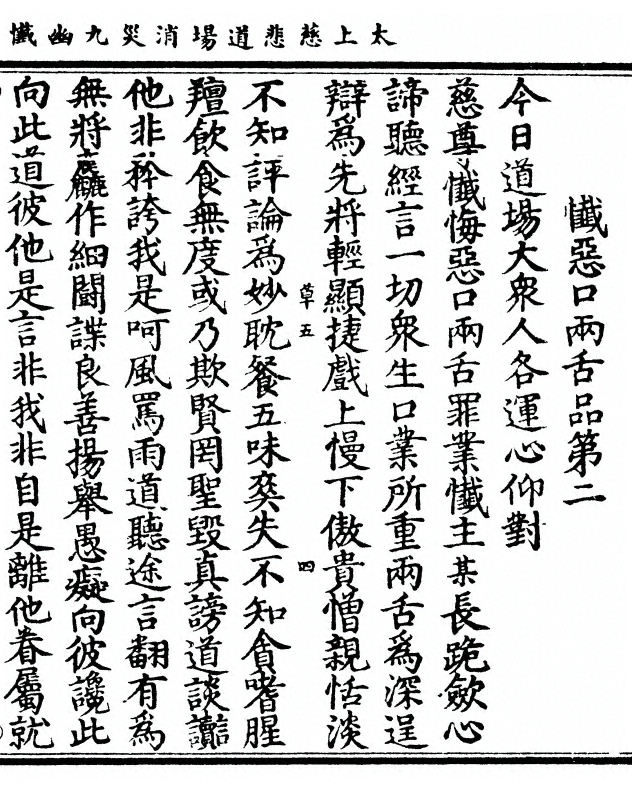 太上慈悲道場消災九幽懺
懺惡口兩舌品第二
今日道場大衆人各運心仰對
慈尊懺悔惡口兩舌罪業懺主某長跪斂心
諦聽經言一切衆生口業所重兩舌爲深逞
辯爲先將輕顯捷戲上慢下傲貴憎親恬淡
草五 四
不知評論爲妙耽餐五味爽失不知貪嗜腥
羶飲食無度或乃欺賢罔聖毀真謗道談讟
他非矜誇我是呵風罵雨道聽途言翻有爲
無將麤作細鬭諜良善揚舉愚癡向彼讒此
向此道彼他是言非我非自是離他眷屬就